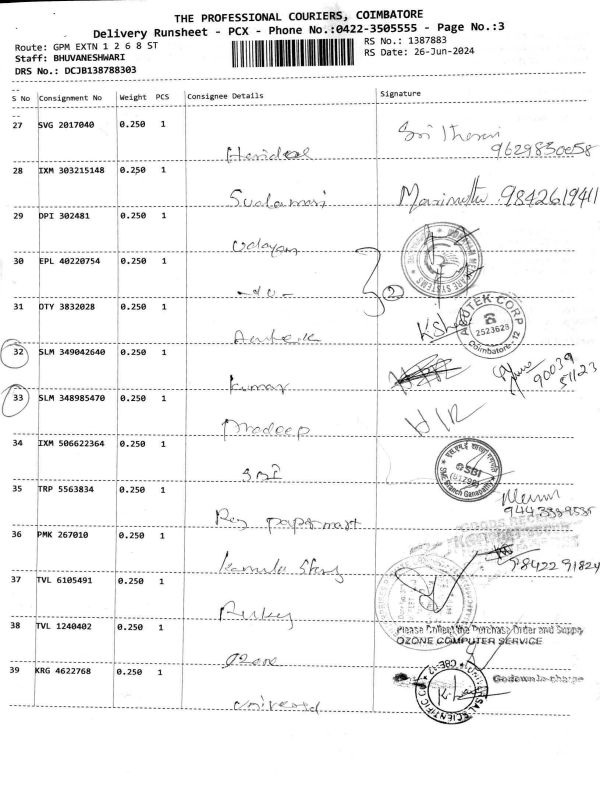 THE PROFESSIONAL COURIERS, COIMBATORE
Delivery Runsheet - PCX - Phone No.:0422-3505555 - Page No.:3
Route: GPM EXTN 1 2 6 8 ST
RS No.: 1387883
Staff: BHUVANESHWARI
RS Date: 26-Jun-2024
DRS No.: DCJB138788303
S No Consignment No Weight PCS Consignee Details Signature
27 SVG 2017040 0.250 1
9629830058
28 IXM 303215148 0.250 1
Marimuthu 9842619411
29 DPI 302481 0.250 1
Udayam
30 EPL 40220754 0.250 1
-do- 2
31 DTY 3832028 0.250 1
ACUTEK CORP
2523628
Coimbatore-12
32 SLM 349042640 0.250 1
Kumar
90039
51123
33 SLM 348985470 0.250 1
Pradeep
34 IXM 506622364 0.250 1
SBI
SBI
SME Branch Ganapathy
35 TRP 5563834 0.250 1
papermart
36 PMK 267010 0.250 1
98422 91824
37 TVL 6105491 0.250 1
38 TVL 1240402 0.250 1
Please Collect the Purchase Order and Supply
OZONE COMPUTER SERVICE
Ozone
39 KRG 4622768 0.250 1
UNIVERSAL SCIENTIFIC CO CBE-12
Universal